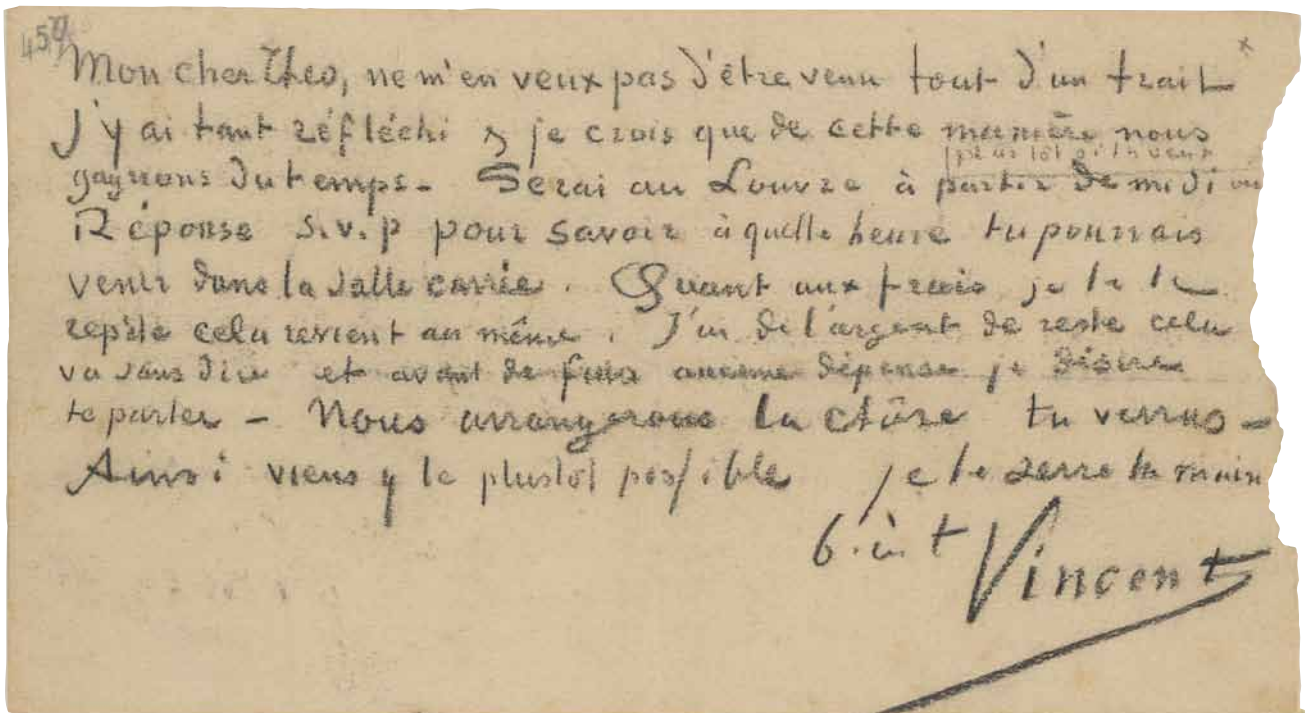 459
Mon cher Theo, ne m'en veux pas d'être venu tout d'un trait
J'y ai tant réfléchi & je crois que de cette manière nous
plus tôt si tu veux
gagnons du temps - Serai au Louvre à partir de midi ou
Réponse s.v.p pour savoir à quelle heure tu pourrais
venir dans la salle carrée. Quant aux frais je te le
repète cela revient au même. J'ai de l'argent de reste cela
va sans dire et avant de faire aucune dépense je désire
te parler - Nous arrangerons la chôse tu verras -
Ainsi viens y le plustôt possible je te serre la main
b. à t
Vincent